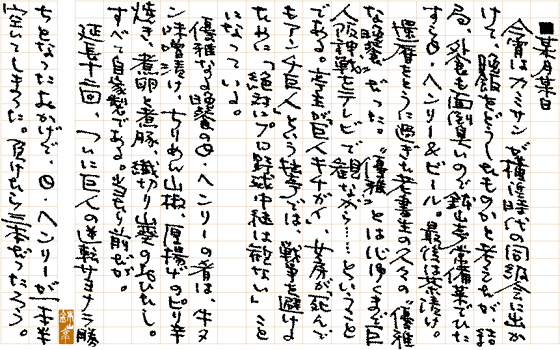 ■某月某日
今宵はカミサンが横浜時代の同級会に出か
けて、晩飯をどうしたものかと考えたが、結
局、外食も面倒臭いので鉢山亭常備菜でひた
すらＯ・ヘンリー＆ビール。最後は茶漬け。
還暦をとうに過ぎた老書生の久々の〝優雅
な晩餐〟だった。〝優雅〟とは心ゆくまで巨
人阪神戦をテレビで観ながら……ということ
である。亭主が巨人キチガイ、女房が死んで
もアンチ巨人という拙宅では、戦争を避ける
ために「絶対にプロ野球中継は観ない」こと
になっている。
優雅なる晩餐のＯ・ヘンリーの肴は、牛タ
ン味噌漬け、ちりめん山椒、厚揚げのピリ辛
焼き、煮卵と煮豚、繊切り山葵のおひたし。
すべて自家製である。当たり前だが。
延長十二回、ついに巨人の逆転サヨナラ勝
ちとなったおかげで、Ｏ・ヘンリーが一本半
空いてしまった。負けたら二本だったろう。